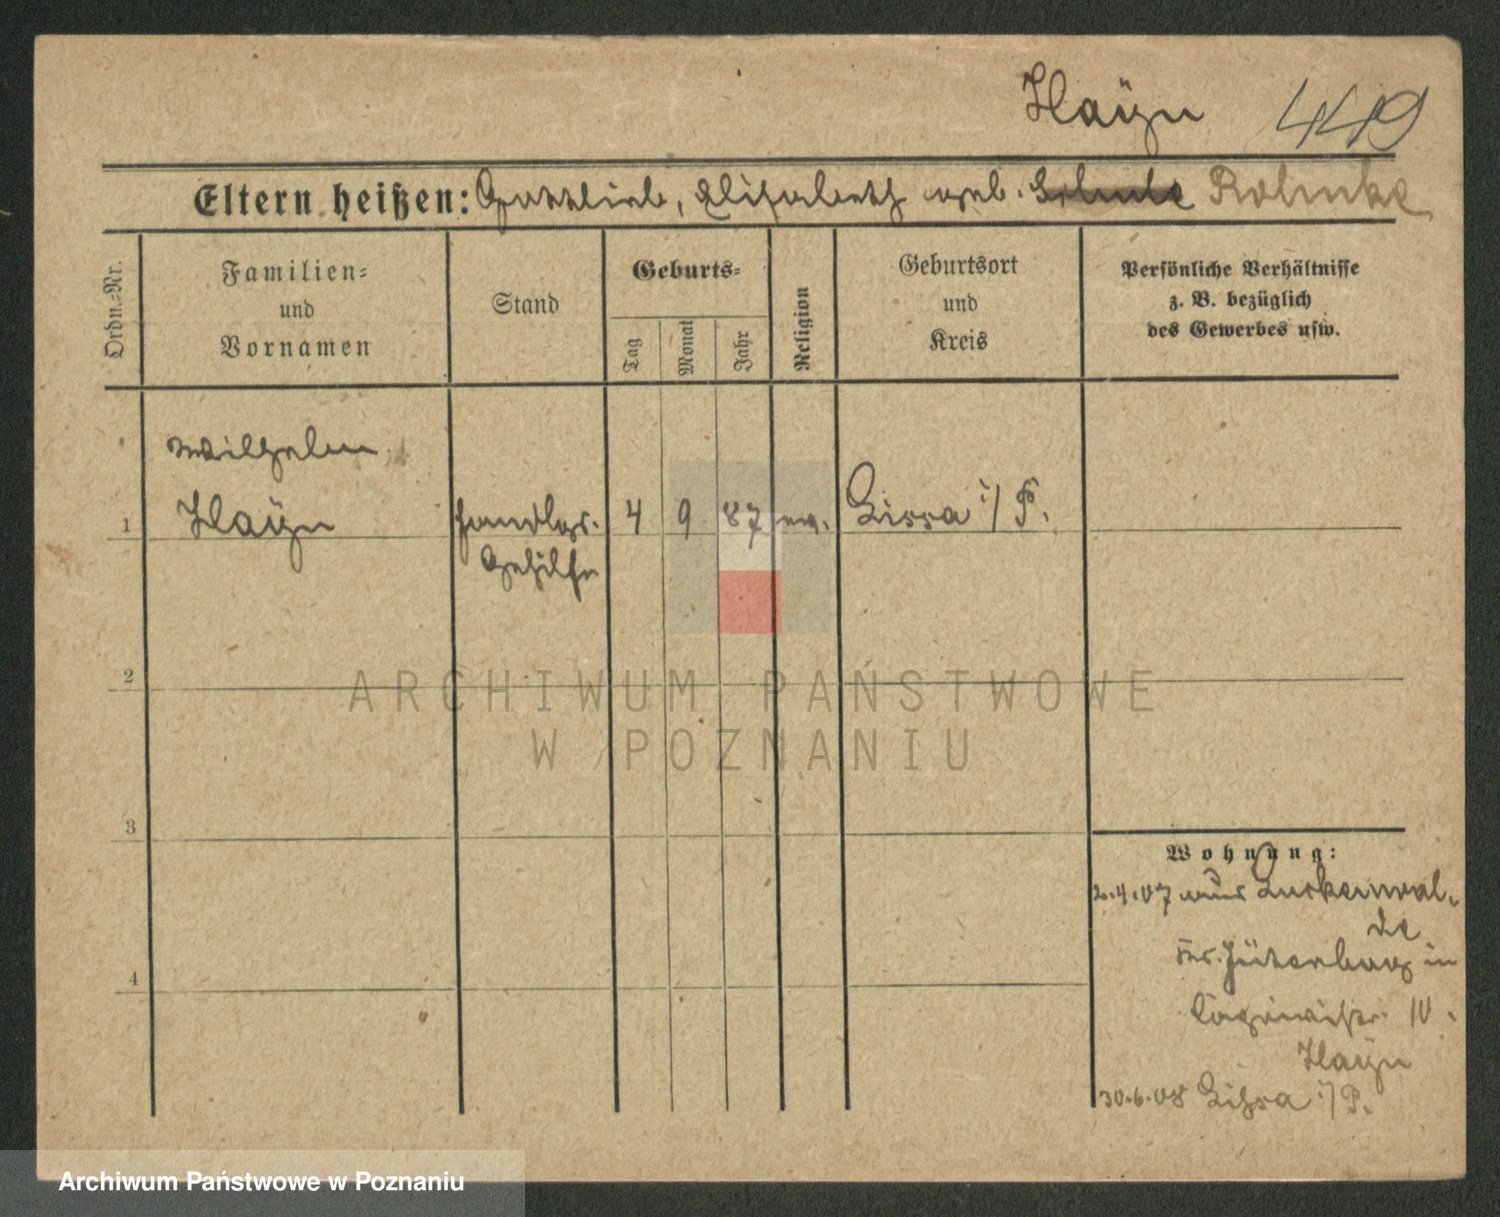 Hayn 449
Eltern heißen: Gottlieb, Elisabeth geb. Rohnke
Ordn.=Nr.
Familien=
und
Vornamen
Stand
Geburts=
Tag
Monat
Jahr
Religion
Geburtsort
und
Kreis
Persönliche Verhältnisse
z. B. bezüglich
des Gewerbes usw.
Wilhelm
1 Haÿn Handlgs. 4 9 87 ev. Lissa i/P.
Gehilfe
2
ARCHIWUM PAŃSTWOWE
W POZNANIU
3
Wohnung:
2.4.07 aus Luckenwal-
de
Kr. Jüterbog in
IV.
Haÿn
4
30.6.08 Lissa i/P.
Archiwum Państwowe w Poznaniu